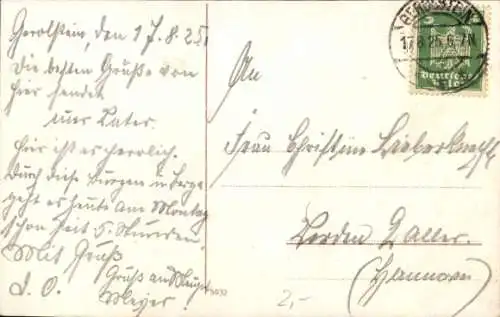 Gerolstein, den 17.8.25.
Die besten Grüße von
hier sendet
euer Vater.
Hier ist es herrlich.
Durch diese Burgen u. Berge
geht es heute am Montag
schon seit 5 Stunden.
Mit Gruß
Gruß an
Meyer.
An
Frau Christine
(Hannover)
GEROLSTEIN
17.8.25. 6-7N
Deutsches
Reich
2,-